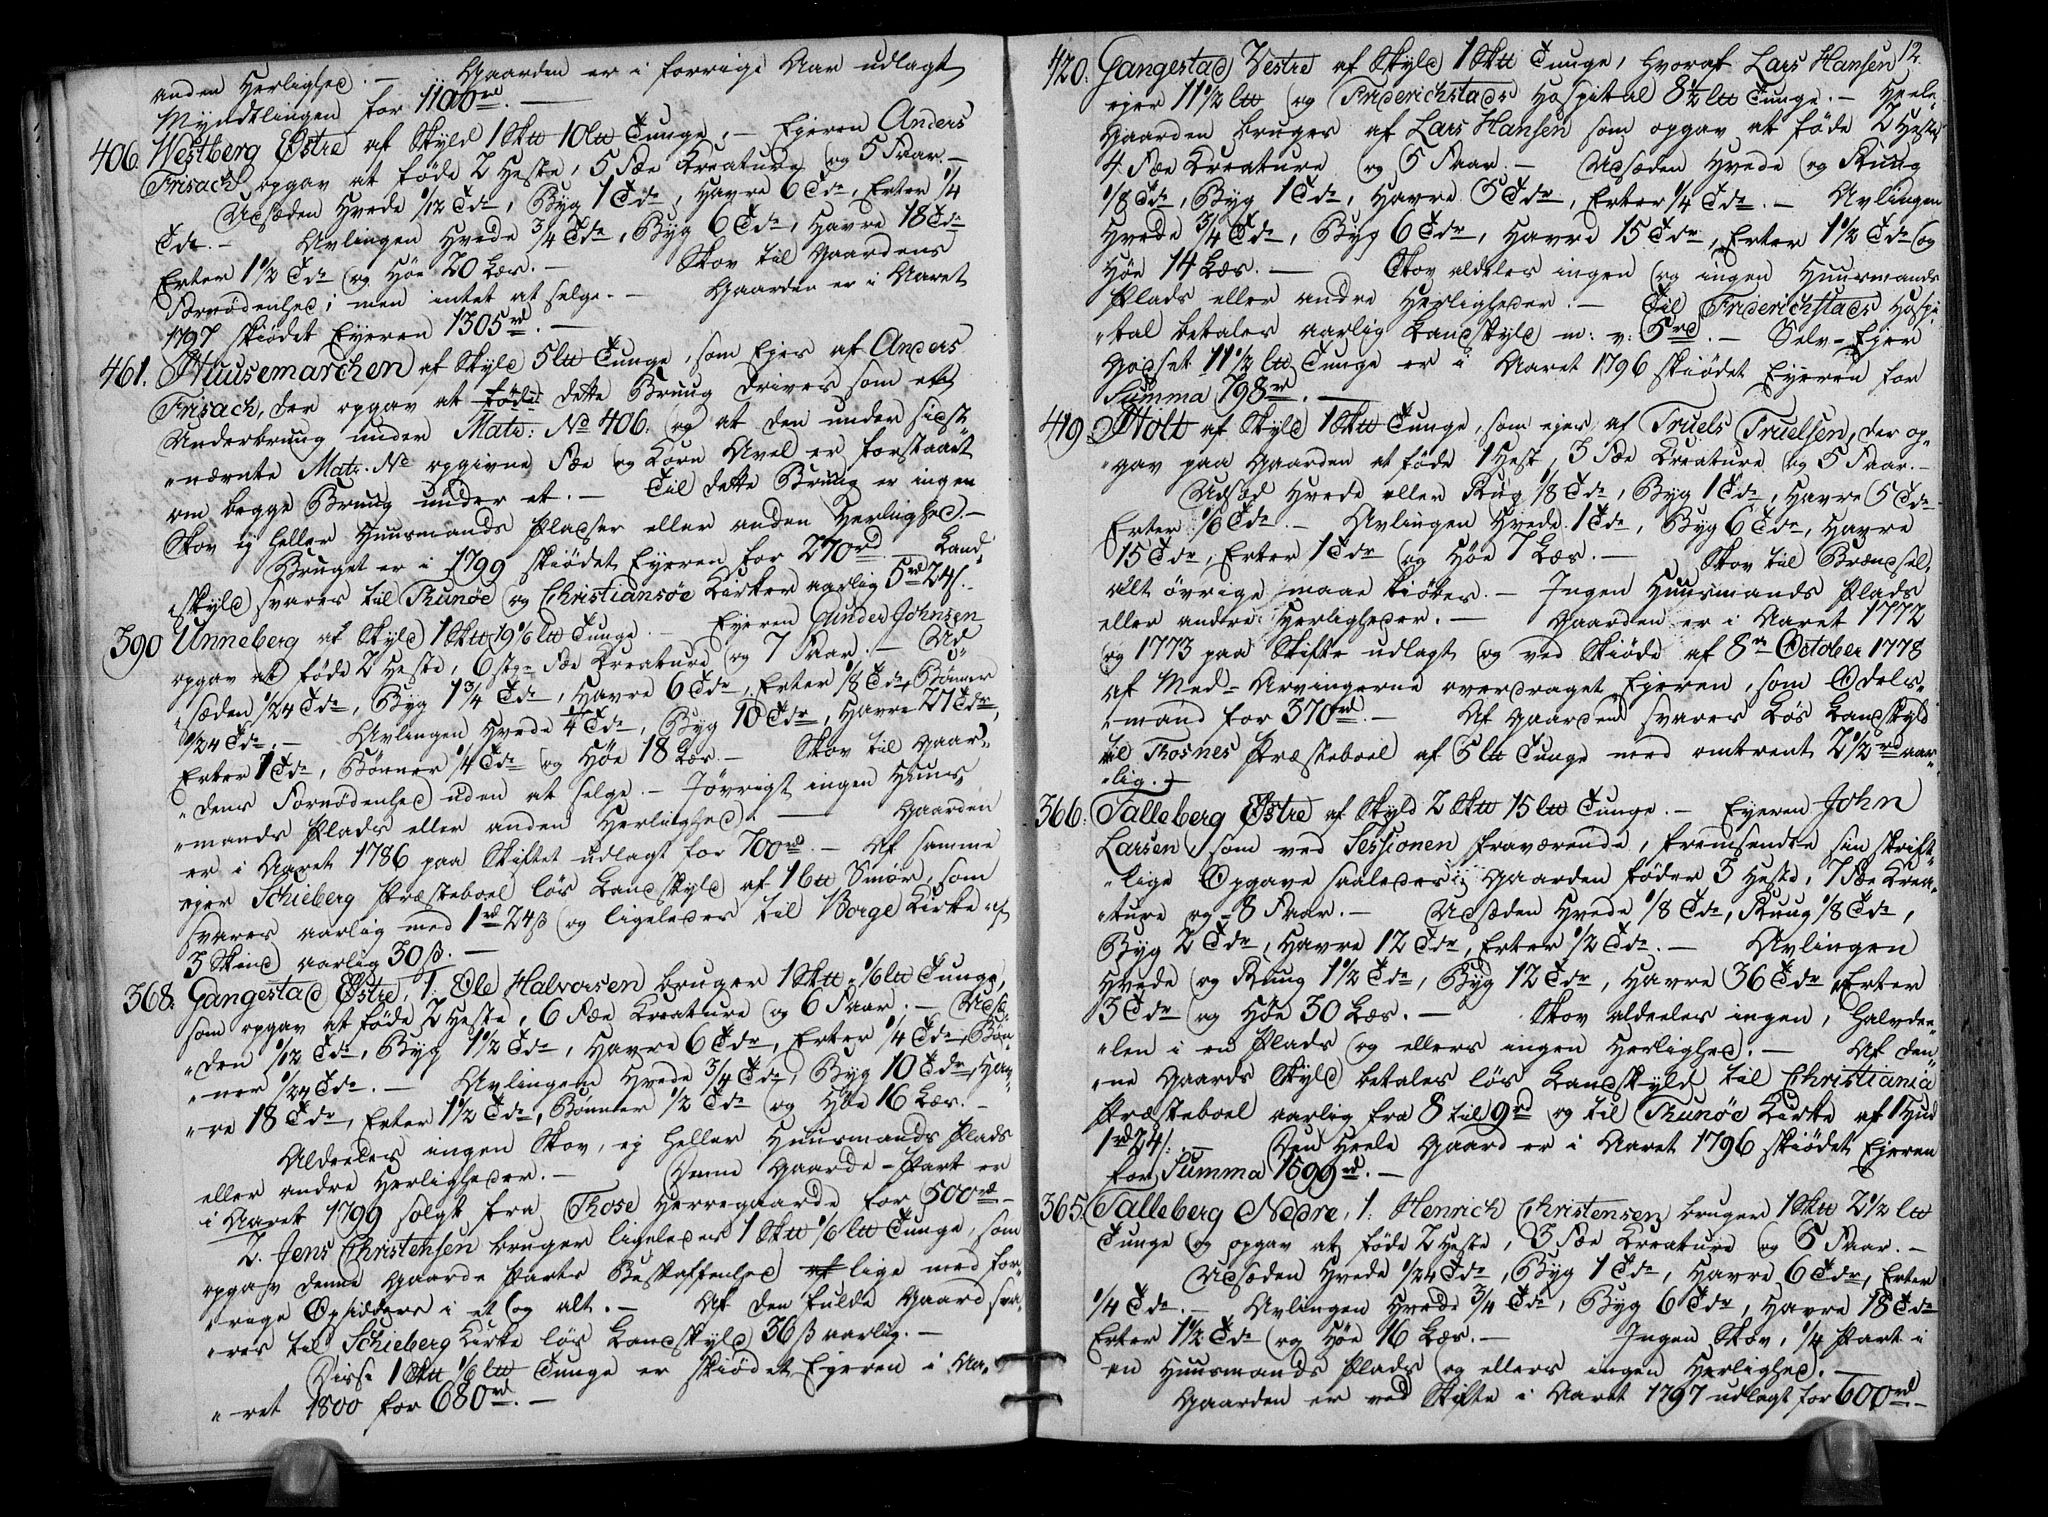 anden Herlighed. — Gaarden er i forrige Aar udlagt
Myndtlingen for 1100 rd. —
406. Westberg Østre af Skyld 1 Sktt 10 ltt Tunge, — Ejeren Anders
Frisach opgav at føde 2 Heste, 5 Fæe Kreature og 5 Faar. —
Udsæden Hvede 1/12 Tde, Byg 1 Tde, Havre 6 Tdr, Erter 1/4
Tde. — Avlingen Hvede 3/4 Tde, Byg 6 Tdr, Havre 18 Tdr
Erter 1 1/2 Tde og Høe 20 Læs. — Skov til Gaardens
Fornødenhed; men intet at selge. — Gaarden er i Aaret
1797 skiødet Eyeren 1305 rd. —
461. Huusemarchen af Skyld 5 ltt Tunge, som Ejes af Anders
Frisach, der opgav at føde dette Bruug drives som et
Underbruug under Matr: No 406. og at den under sidst
„nævnte Matr. No opgivne Fæe og Korn Avel er forstaaet
om begge Bruug under et. — Til dette Bruug er ingen
Skov ej heller Huusmands Pladser eller anden Herlighed. —
Bruget er i 1799 skiødet Eyeren for 270 rd. Land„
„skyld svares til Thunøe og Christiansøe Kirker aarlig 5 rd 24 s. —
390 Unneberg af Skyld 1 Sktt 19 1/6 ltt Tunge. — Eyeren Gunder Johnsen
opgav at føde 2 Heste, 6 stkr Fæe Kreature og 7 Faar. — Ud„
„sæden 1/24 Tde, Byg 1 3/4 Tde, Havre 6 Tdr, Erter 1/8 Tde, Bønner
1/24 Tde. — Avlingen Hvede 1/4 Tde, Byg 10 Tdr, Havre 27 Tdr,
Erter 1 Tde, Bønner 1/4 Tde og Høe 18 Læs. — Skov til Gaar„
„dens Fornødenhed uden at selge. — Jøvrigt ingen Huus„
„mands Plads eller anden Herlighed. — Gaarden
er i Aaret 1786 paa Skiftet udlagt for 700 rd. — Af samme
ejer Schieberg Præsteboel løs Landskyld af 1 ltt Smør, som
svares aarlig med 1 rd 24 ß og ligeledes til Borge Kirke af
3 Skind aarlig 30 ß. —
368. Gangestad Østre, 1: Ole Halvorsen bruger 1 Sktt 1/6 ltt Tunge,
som opgav at føde 2 Heste, 6 Fæe Kreature og 6 Faar. — Udsæ„
„den 1/12 Tde, Byg 1 1/2 Tde, Havre 6 Tdr, Erter 1/4 Tde, Bøn„
„ner 1/24 Tde. — Avlingen Hvede 3/4 Tde, Byg 10 Tdr, Hav„
„re 18 Tdr, Erter 1 1/2 Tde, Bønner 1/2 Tde og Høe 16 Læs. —
Aldeeles ingen Skov, ej heller Huusmands Plads
eller andre Herligheder. — Denne Gaarde-Part er
i Aaret 1799 solgt fra Those Herregaarde for 500 rd —
2. Jens Christensen bruger ligeledes 1 Sktt 1/6 ltt Tunge, som
opgav denne Gaarde Parts Beskaffenhed af lige med for„
„rige Opsidders i et og alt. — Af den fulde Gaard sva„
„res til Schieberg Kirke løs Landskyld 36 ß aarlig. —
Disse 1 Sktt 1/6 ltt Tunge er skiødet Ejeren i Aa„
„ret 1800 for 680 rd. —
12.
420. Gangestad Vestre af Skyld 1 Sktt Tunge, hvoraf Lars Hansen
ejer 11 1/2 ltt og Friderichstads Hospital 8 1/2 ltt Tunge. — Heele
Gaarden bruges af Lars Hansen som opgav at føde 2 Heste
4 Fæe Kreature og 5 Faar. — Udsæden Hvede og Ruug
1/8 Tde, Byg 1 Tde, Havre 5 Tdr, Erter 1/4 Tde. — Avlingen
Hvede 3/4 Tde, Byg 6 Tdr, Havre 15 Tdr, Erter 1 1/2 Tde og
Høe 14 Læs. — Skov aldeles ingen og ingen Huusmands
Plads eller andre Herligheder. — Til Friderichstads Hospi„
„tal betales aarlig Landskyld m: v: 5 rd. — Selv-Ejer
Godset 11 1/2 ltt Tunge er i Aaret 1796 skiødet Eyeren for
Summa 798 rd. —
419. Holt af Skyld 1 Sktt Tunge, som ejes af Truels Truelsen, der op„
„gav paa Gaarden at føde 1 Hest, 3 Fæe Kreature og 5 Faar. —
Udsæd Hvede eller Rug 1/8 Tde, Byg 1 Tde, Havre 5 Tdr
Erter 1/8 Tde. — Avlingen Hvede 1 Tde, Byg 6 Tdr, Havre
15 Tdr, Erter 1 Tde og Høe 7 Læs. — Skov til Brændsel,
alt øvrige maae kiøbes. — Ingen Huusmands Plads
eller andre Herligheder. — Gaarden er i Aaret 1772
og 1773 paa Skifte udlagt og ved Skiøde af 8de October 1778
af Med-Arvingerne overdraget Ejeren, som Odels„
„mand for 370 rd. — Af Gaarden svares Løs Landskyld
til Thosnes Præsteboel af 5 ltt Tunge med omtrent 2 1/2 rd aar„
„lig. —
366. Talleberg Østre af Skyld 2 Sktt 15 ltt Tunge. — Eyeren John
Larsen, som ved Sessionen fraværende, fremsendte sin skrift„
„lige Opgave saaledes: Gaarden føder 3 Heste, 7 Fæe Krea„
„ture og 8 Faar. — Udsæden Hvede 1/8 Tde, Ruug 1/8 Tde,
Byg 2 Tdr, Havre 12 Tdr, Erter 1/2 Tde. — Avlingen
Hvede og Ruug 1 1/2 Tde, Byg 12 Tdr, Havre 36 Tdr, Erter
3 Tdr og Høe 30 Læs. — Skov aldeeles ingen, Halvdee„
„len i en Plads og ellers ingen Herlighed. — Af den„
„ne Gaards Skyld betales løs Landskyld til Christiania
Præsteboel aarlig fra 8 til 9 rd og til Thunøe Kirke af 1 Hud
1 rd 24 s. — Den Heele Gaard er i Aaret 1796 skiødet Ejeren
for Summa 1599 rd. —
365. Talleberg Nedre, 1: Henrich Christensen bruger 1 Sktt 2 1/2 ltt
Tunge og opgav at føde 2 Heste, 3 Fæe Kreature og 5 Faar. —
Udsæden Hvede 1/24 Tde, Byg 1 Tde, Havre 6 Tdr, Erter
1/4 Tde. — Avlingen Hvede 3/4 Tde, Byg 6 Tdr, Havre 18 Tdr
Erter 1 1/2 Tde og Høe 16 Læs. — Ingen Skov, 1/4 Part i
en Huusmands Plads og ellers ingen Herlighed. —
Gaarden er ved Skifte i Aaret 1797 udlagt for 600 rd —